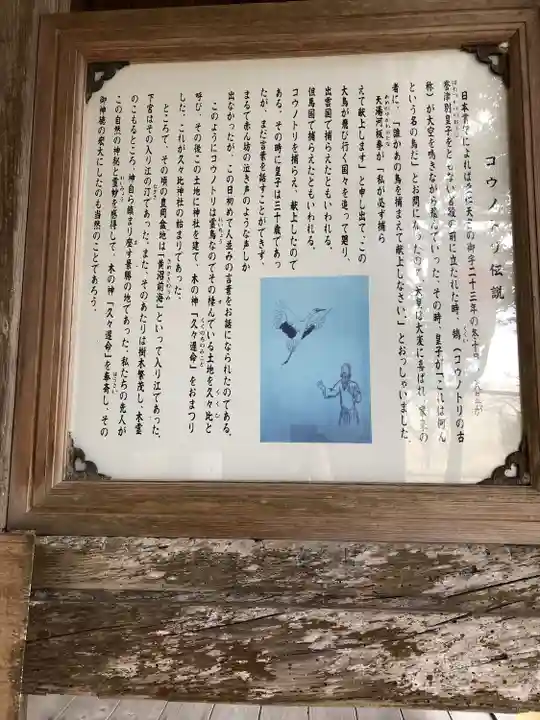 コウノトリ伝説
日本書紀によれば
誉津別皇子をともない宮殿の前に立たれた時、鵠(コウノトリの古
称)が大空を鳴きながら飛んでいった。その時、皇子が「これは何ん
という名の鳥だ」とお問になったので、天皇は大変に喜ばれ、
者に、「誰かあの鳥を捕まえて献上しなさい。」とおっしゃいました。
天湯河板挙が「私が必ず捕ら
えて献上します」と申し出て、この
大鳥が飛び行く国々を追って廻り、
出雲国で捕らえたともいわれる。
但馬国で捕らえたともいわれる。
コウノトリを捕らえ、献上したので
ある。その時に皇子は三十歳であっ
たが、まだ言葉を話すことができず、
まるで赤ん坊の泣き声のような声しか
出なかったが、この日初めて人並みの言葉をお話になられたのである。
このようにコウノトリは霊鳥なのでその棲んでいる土地を久々比と
呼び、その後この土地に神社を建て、木の神「久々遅命」をおまつり
した。これが久々比神社の始まりであった。
ところで、その頃の豊岡盆地は「黄沼前海」といって入り江であった。
下宮はその入り江の汀であった。また、そのあたりは樹木繁茂し、木霊
のこもるところ、神自ら鎮まり座す景勝の地であった。私たちの先人が
この自然の神秘と霊妙を感得して、木の神「久々遅命」を奉斎し、その
御神徳の宏大にしたのも当然のことであろう。